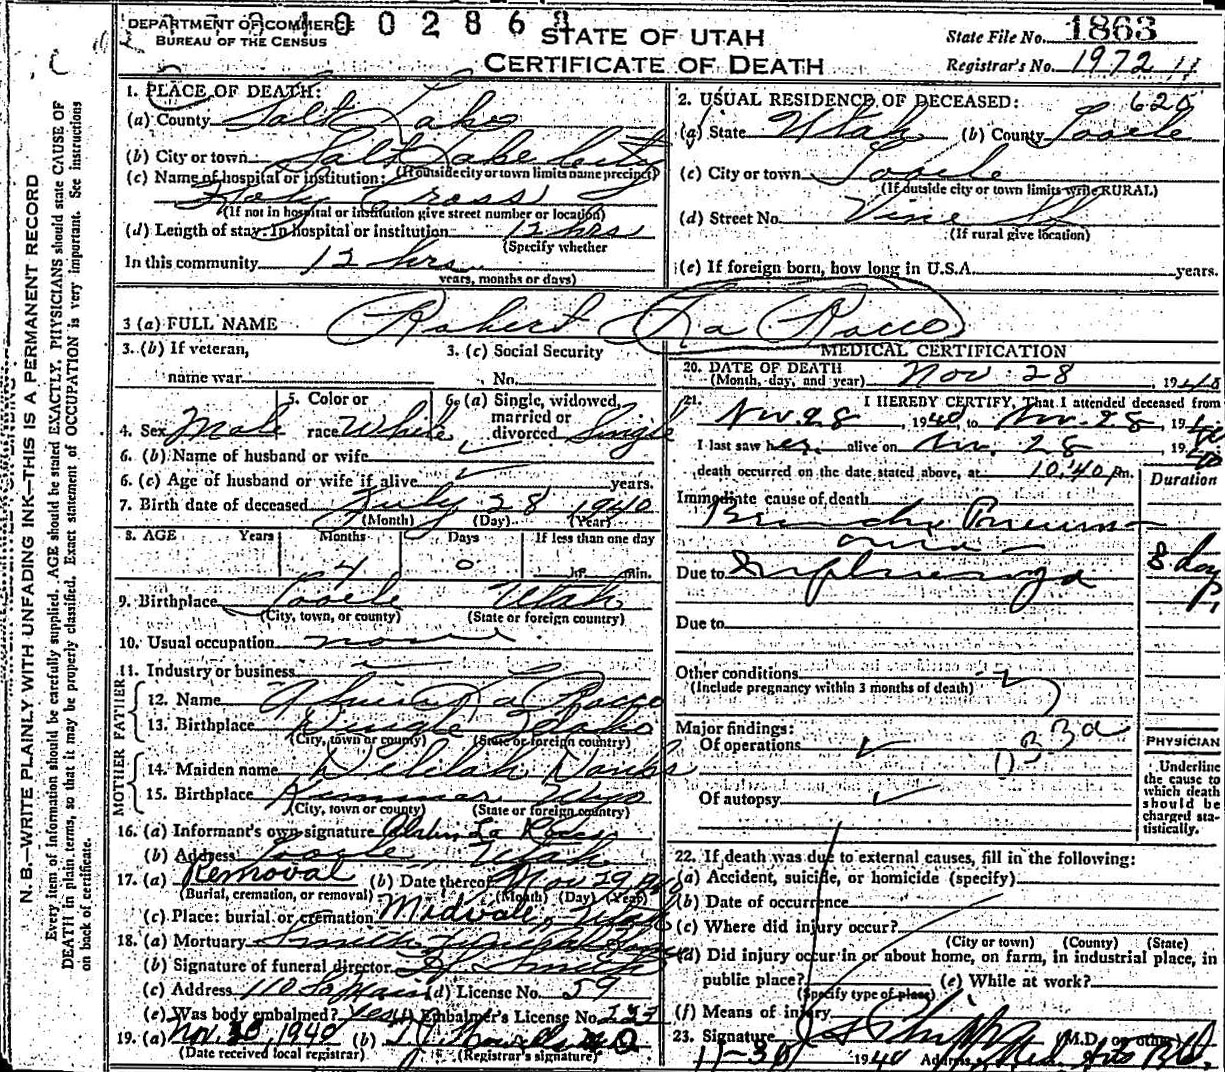 DEPARTMENT OF COMMERCE
BUREAU OF THE CENSUS
0 0 2 8 6
STATE OF UTAH
CERTIFICATE OF DEATH
State File No. 1863
Registrar's No. 1972
N.B.—WRITE PLAINLY WITH UNFADING INK—THIS IS A PERMANENT RECORD
Every item of information should be carefully supplied. AGE should be stated EXACTLY. PHYSICIANS should state CAUSE OF
DEATH in plain terms, so that it may be properly classified. Exact statement of OCCUPATION is very important. See instructions
on back of certificate.
1. PLACE OF DEATH:
(a) County Salt Lake
(b) City or town Salt Lake City
(If outside city or town limits name precinct)
(c) Name of hospital or institution:
Holy Cross
(If not in hospital or institution give street number or location)
(d) Length of stay: In hospital or institution 12 hrs
(Specify whether
In this community 12 hrs
years, months or days)
2. USUAL RESIDENCE OF DECEASED: 620
(a) State Utah (b) County Tooele
(c) City or town Tooele
(If outside city or town limits write RURAL)
(d) Street No. Vine St
(If rural give location)
(e) If foreign born, how long in U.S.A. years.
3 (a) FULL NAME Robert La Rocco
3. (b) If veteran,
name war
3. (c) Social Security
No.
4. Sex Male
5. Color or
race White
6. (a) Single, widowed,
married or
divorced Single
6. (b) Name of husband or wife
6. (c) Age of husband or wife if alive years.
7. Birth date of deceased July 28 1940
(Month) (Day) (Year)
8. AGE Years Months Days If less than one day
4 0 hr. min.
9. Birthplace Tooele Utah
(City, town, or county) (State or foreign country)
10. Usual occupation none
11. Industry or business
FATHER
12. Name La Rocco
13. Birthplace Idaho
(City, town or county) (State or foreign country)
MOTHER
14. Maiden name Delilah
15. Birthplace Kemmerer Wyo
(City, town or county) (State or foreign country)
16. (a) Informant's own signature La Rocco
(b) Address Tooele, Utah
17. (a) Removal (b) Date thereof Nov 29 1940
(Burial, cremation, or removal) (Month) (Day) (Year)
(c) Place: burial or cremation Midvale, Utah
18. (a) Mortuary Smith
(b) Signature of funeral director Smith
(c) Address 110 So Main (d) License No. 59
(e) Was body embalmed? yes (f) Embalmer's License No.
19. (a) Nov. 30, 1940 (b)
(Date received local registrar) (Registrar's signature)
MEDICAL CERTIFICATION
20. DATE OF DEATH
(Month, day, and year) Nov. 28, 1940
21. I HEREBY CERTIFY, That I attended deceased from
Nov. 28, 1940, to Nov. 28, 1940
I last saw her alive on Nov. 28, 1940
death occurred on the date stated above, at 10:40 pm.
Duration
Immediate cause of death
Broncho Pneum-
onia
Due to Influenza 8 days
Due to
Other conditions
(Include pregnancy within 3 months of death)
Major findings:
Of operations
33a
Of autopsy
PHYSICIAN
Underline
the cause to
which death
should be
charged sta-
tistically.
22. If death was due to external causes, fill in the following:
(a) Accident, suicide, or homicide (specify)
(b) Date of occurrence
(c) Where did injury occur?
(City or town) (County) (State)
(d) Did injury occur in or about home, on farm, in industrial place, in
public place? (e) While at work?
(Specify type of place)
(f) Means of injury
23. Signature (M.D. or other)
11-30 1940 Address Med. Arts Bldg.